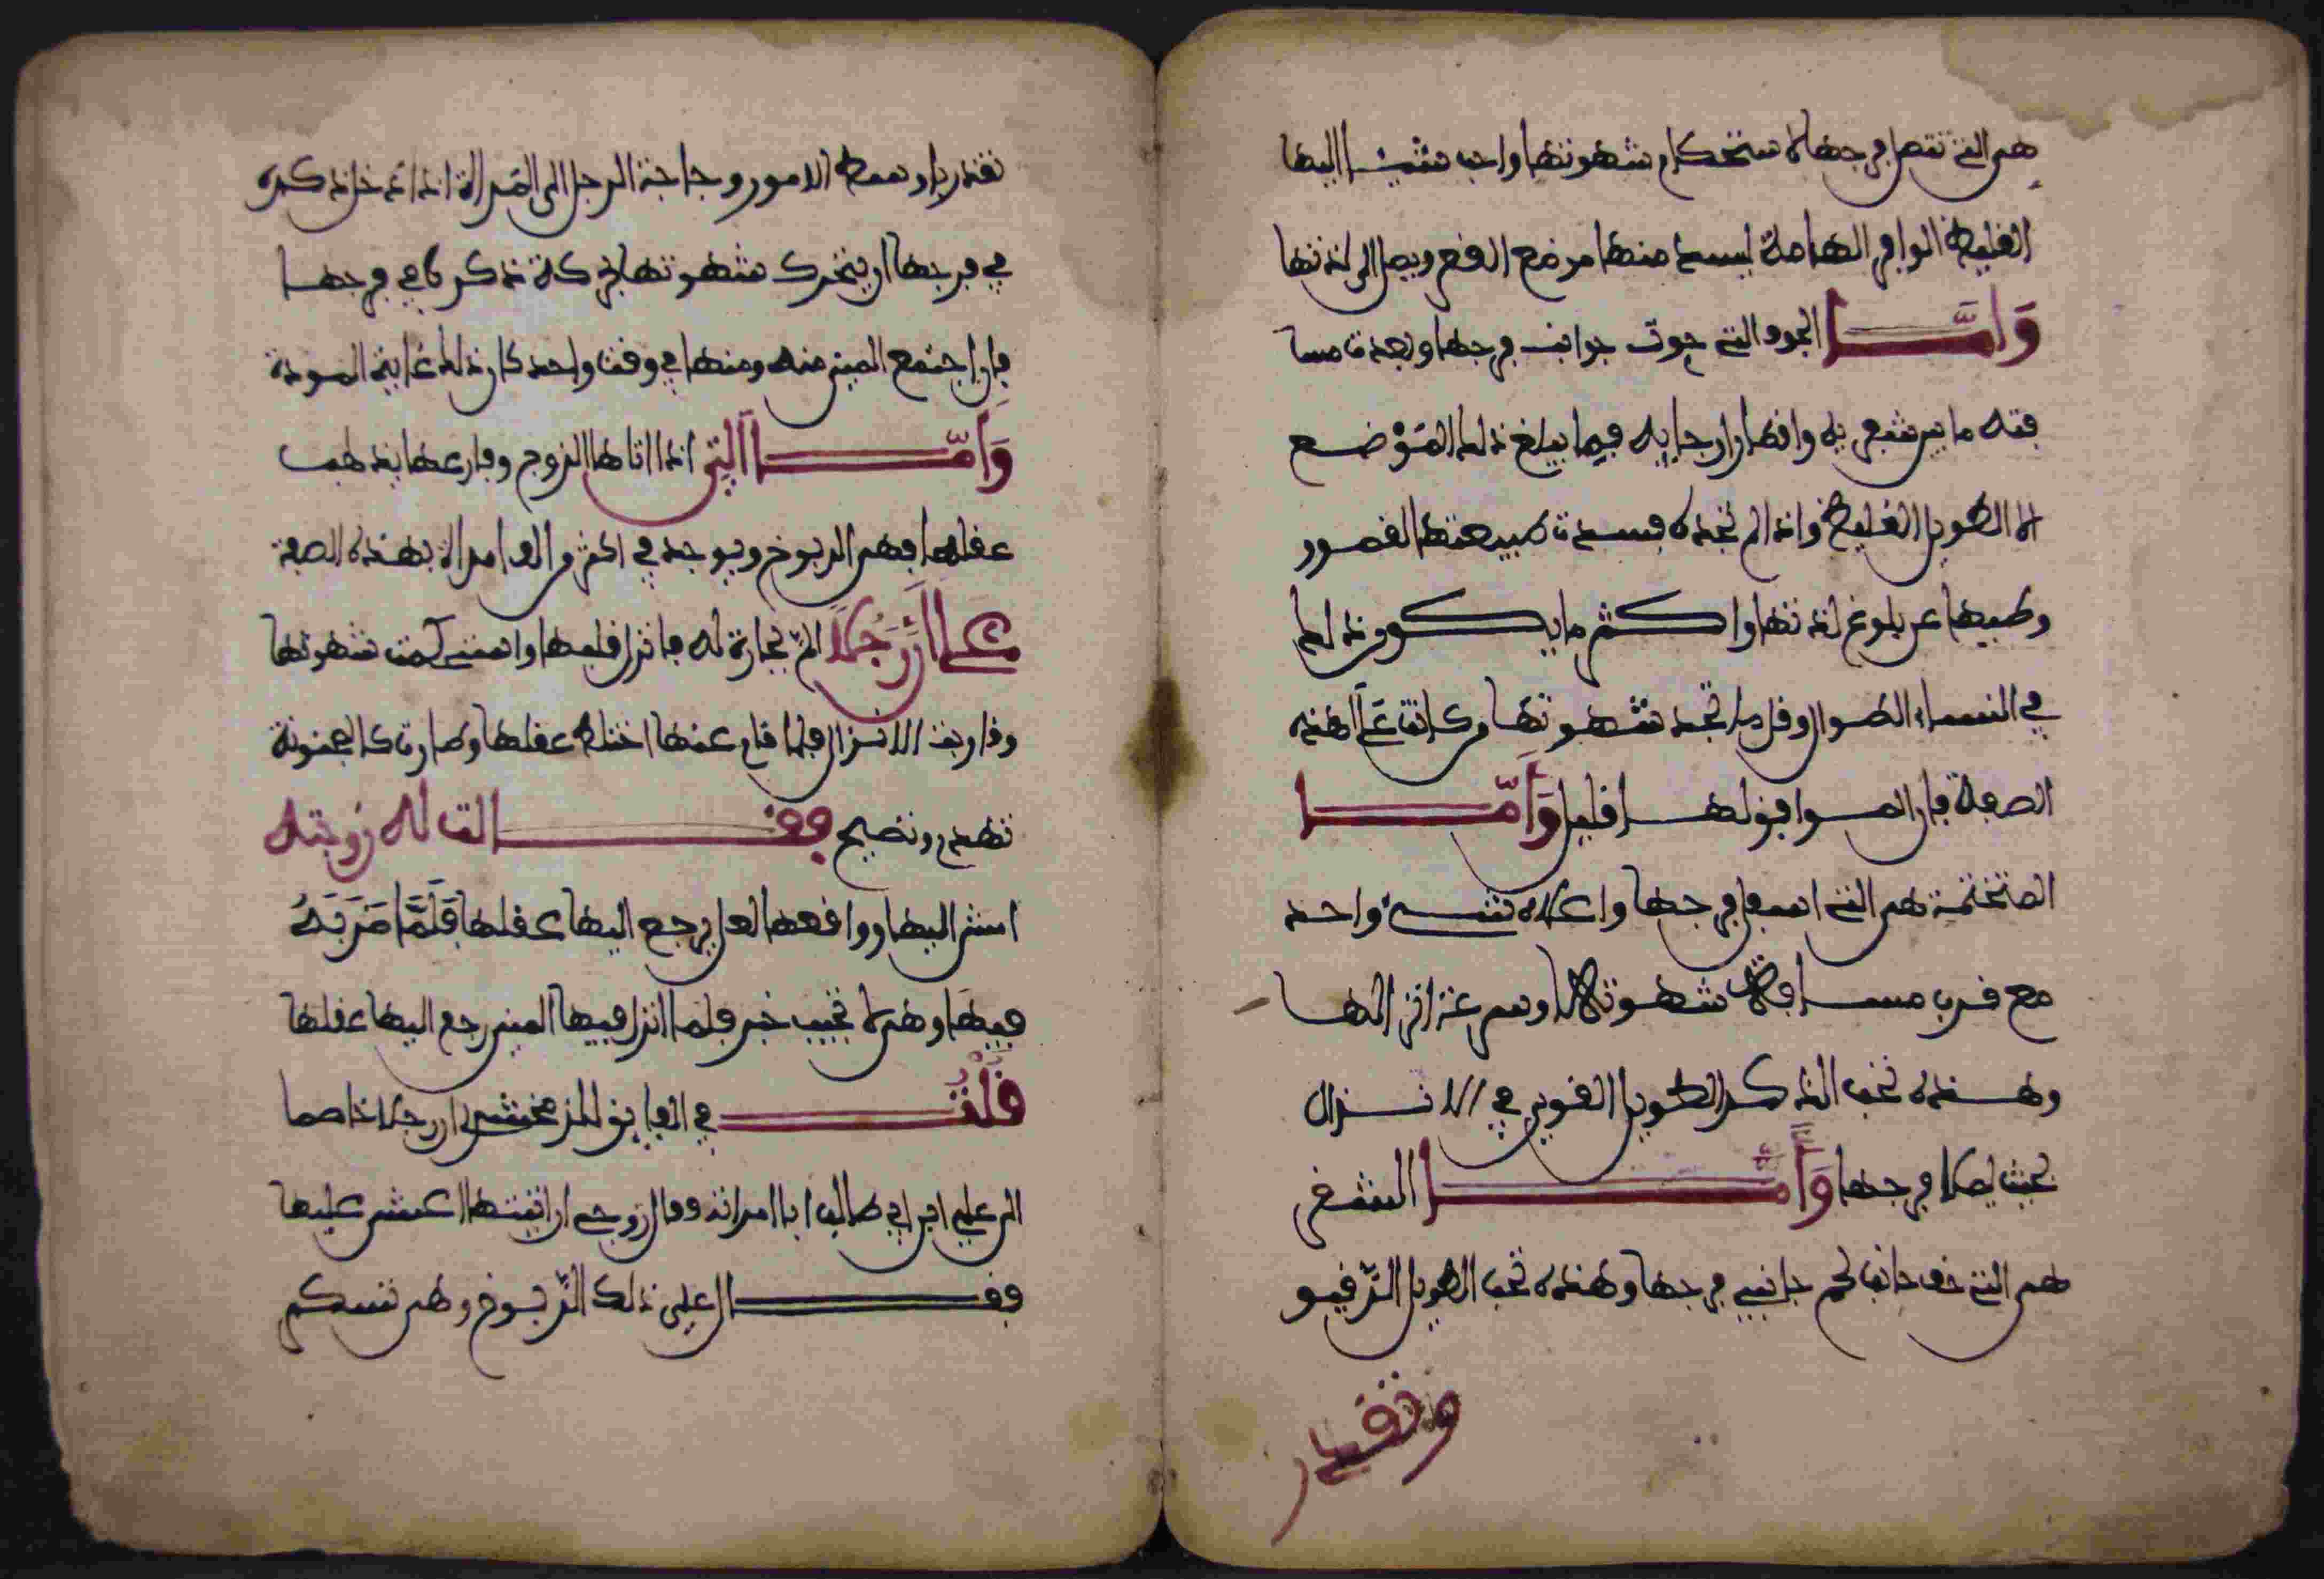 هي التي تنضم فرجها لاستحكام شهوتها واحب شيء اليها
الغليظ الوافر الهامة ليسد منها موضع الدفع ويصل الى لذتها
وَأمَّا الجوف التي جوّف جوانب فرجها وبعدت مسا
فته ما بين شعر به وافطار ارجايه فيما يبلغ ذلك المَوْضع
الا الطويل الغليظ واذا لم تجده فسدت طبيعتها لقصور
وطيها عن بلوغ لذتها واكثر ما يكون ذلك
في النساء الطوال وقل ما تجد شهوتها من كانت عَلَى هذه
الصفة فان انسوا فبولها قليل وَأمَّا
المتختمة هي التي اسفل فرجها واعلاه شيء واحد
مع قرب مسافة شهوتها وسرعة انزالها
وهذه تحب الذكر الطويل القوي في الانزال
بحيث يملا فرجها وَأمَّا الشفر
هي التي خف جانب لحم جانبي فرجها وهذه تحب الطويل الرّقيق
وتقدير
تقدير اوسط الامور وحاجة الرجل الى المَرأة اذا ادخل ذكره
في فرجها ان يتحرك شهوتها بحركة ذكره في فرجها
فان اجتمع المني منه ومنها في وقت واحد كان ذلك غاية المودة
وَأمَّا التي اذا اتاها الزوج وفارعها يذهب
عقلها فهي الربوخ ويوجد في اكثر من الف امراة بهذه الصفة
حكي ان رَجُلا الم بجارية له فانزل فيها واستحكمت شهوتها
وقاربت الانزال فلما قام عنها اختلط عقلها وصارت كالمجنونة
تهدر وتصيح فقالت له زوجته
امش اليها وواقعها لعل يرجع اليها عقلها فَلَمَّا ضَرَبَهُ
فيها وهي لا تجيب خبر فلما انزل فيها المني رجع اليها عقلها
قُلْتُ في الفايق للزمخشري ان رجلا خاصم
الى علي بن ابي طالب ابا امراته وقال زوجني ارايتها اغشي عليها
فقال علي ذلك الرّبوخ وهي تسكم